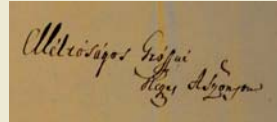 Méltóságos Grófné
Nagy Aszszonyom